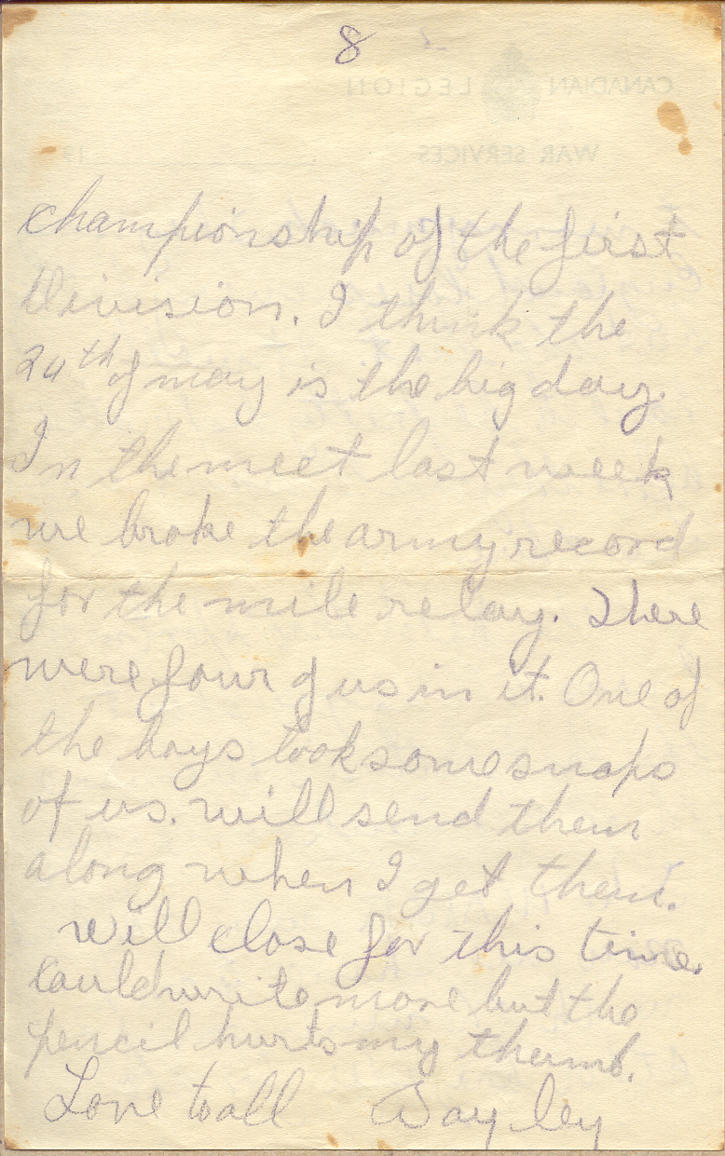 8
CANADIAN LEGION
WAR SERVICES
19
championship of the first
Division. I think the
24th of may is the big day.
In the meet last week
we broke the army record
for the mile relay. There
were four of us in it. One of
the boys took some snaps
of us. will send them
along when I get them.
will close for this time.
could write more but the
pencil hurts my thumb.
Love to all Bayley